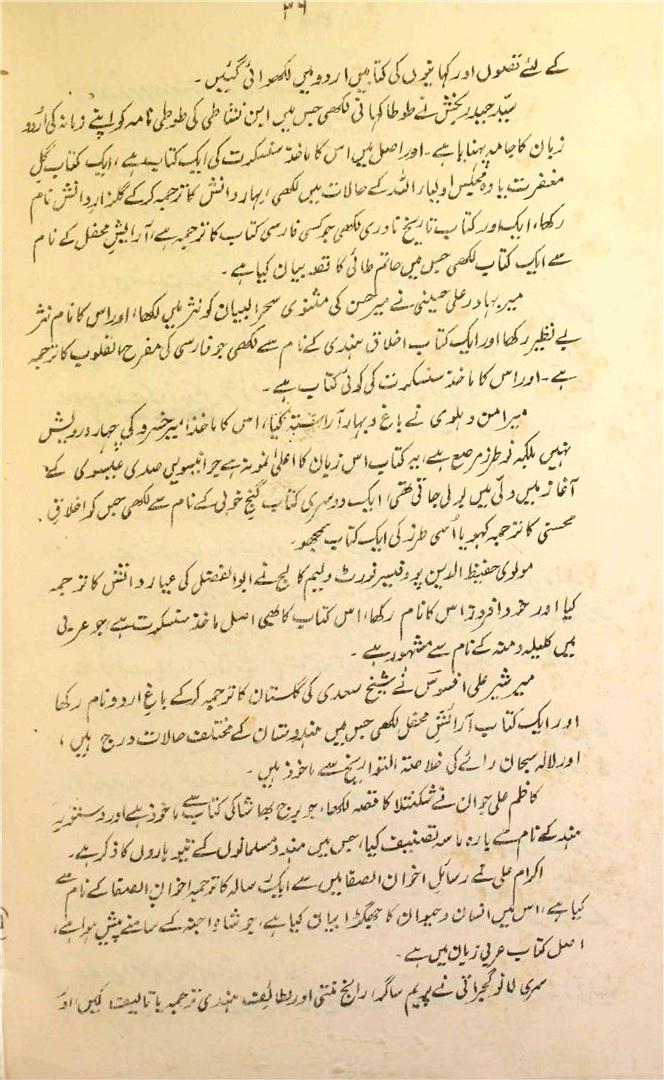 ۳۹
کے لئے قصوں اور کہانیوں کی کتابیں اردو میں لکھوائی گئیں۔
سید حیدر بخش نے طوطا کہانی لکھی جس میں ابن نشاطی کی طوطی نامہ کو اپنے زمانہ کی اُردو
زبان کا جامہ پہنایا ہے۔ اور اصل میں اس کا ماخذ سنسکرت کی ایک کتاب ہے، ایک کتاب گلِ
مغفرت یا دہ مجلس اولیاء اللہ کے حالات میں لکھی، بہار دانش کا ترجمہ کر کے گلزارِ دانش نام
رکھا، ایک اور کتاب تاریخ نادری لکھی جو کسی فارسی کتاب کا ترجمہ ہے، آرائیش محفل کے نام
سے ایک کتاب لکھی جس میں حاتم طائی کا قصہ بیان کیا ہے۔
میر بہادر علی حسینی نے میر حسن کی مثنوی سحر البیان کو نثر میں لکھا، اور اس کا نام نثر
بے نظیر رکھا اور ایک کتاب اخلاق ہندی کے نام سے لکھی جو فارسی کی مفرح القلوب کا ترجمہ
ہے۔ اور اس کا ماخذ سنسکرت کی کوئی کتاب ہے۔
میر امن دہلوی نے باغ و بہار آراستہ کیا، اس کا ماخذ امیر خسرو کی چہار درویش
نہیں بلکہ نو طرز مرصع ہے، یہ کتاب اس زبان کا اعلیٰ نمونہ ہے جو انیسویں صدی عیسوی کے
آغاز میں دلّی میں بولی جاتی تھی، ایک دوسری کتاب گنج خوبی کے نام سے لکھی جس کو اخلاق
محسنی کا ترجمہ کہو یا اُسی طرز کی ایک کتاب سمجھو۔
مولوی حفیظ الدین پروفیسر فورٹ ولیم کالج نے ابوالفضل کی عیار دانش کا ترجمہ
کیا اور خرد افروز اس کا نام رکھا، اس کتاب کا بھی اصل ماخذ سنسکرت ہے جو عربی
میں کلیلہ دمنہ کے نام سے مشہور ہے۔
میر شیر علی افسوس نے شیخ سعدی کی گلستان کا ترجمہ کر کے باغِ اردو نام رکھا
اور ایک کتاب آرائش محفل لکھی جس میں ہندوستان کے مختلف حالات درج ہیں،
اور لالہ سبحان رائے کی خلاصتہ التواریخ سے ماخوذ ہیں۔
کاظم علی جوان نے شکنتلا کا قصہ لکھا، جو برج بھاشا کی کتاب سے ماخوذ ہے اور دستور
ہند کے نام سے بارہ ماسہ تصنیف کیا، جس میں ہندو مسلمانوں کے تیوہاروں کا ذکر ہے۔
اکرام علی نے رسائل اخوان الصفا میں سے ایک رسالہ کا ترجمہ اخوان الصفا کے نام سے
کیا ہے، اس میں انسان و حیوان کا جھگڑا بیان کیا ہے، جو شاہ اجنہ کے سامنے پیش ہوا ہے،
اصل کتاب عربی زبان میں ہے۔
سری للو گجراتی نے پریم ساگر، راج نیتی اور لطائف ہندی ترجمہ یا تالیف کیں، اور